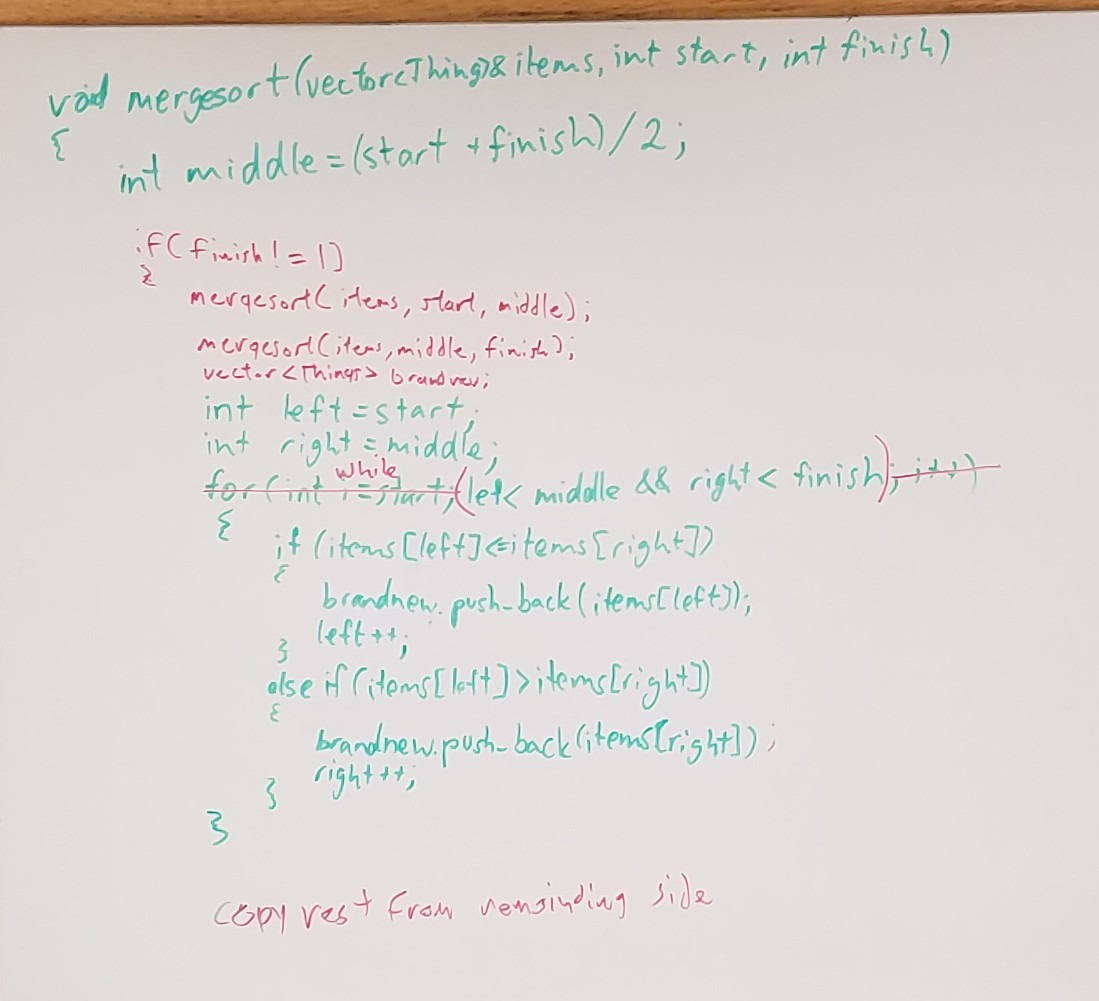 void mergesort(vector<Thing>& items, int start, int finish)
{
int middle=(start +finish)/2;
if(finish!=1)
{
mergesort(items, start, middle);
mergesort(items, middle, finish);
vector<Things> brandnew;
int left=start;
int right=middle;
while
for(int i=start;(left< middle && right< finish);i++)
{
if (items[left]<=items[right])
{
brandnew.push_back(items[left]);
left++;
}
else if(items[left]>items[right])
{
brandnew.push_back(items[right]);
right++;
}
}
copy rest from remainding side